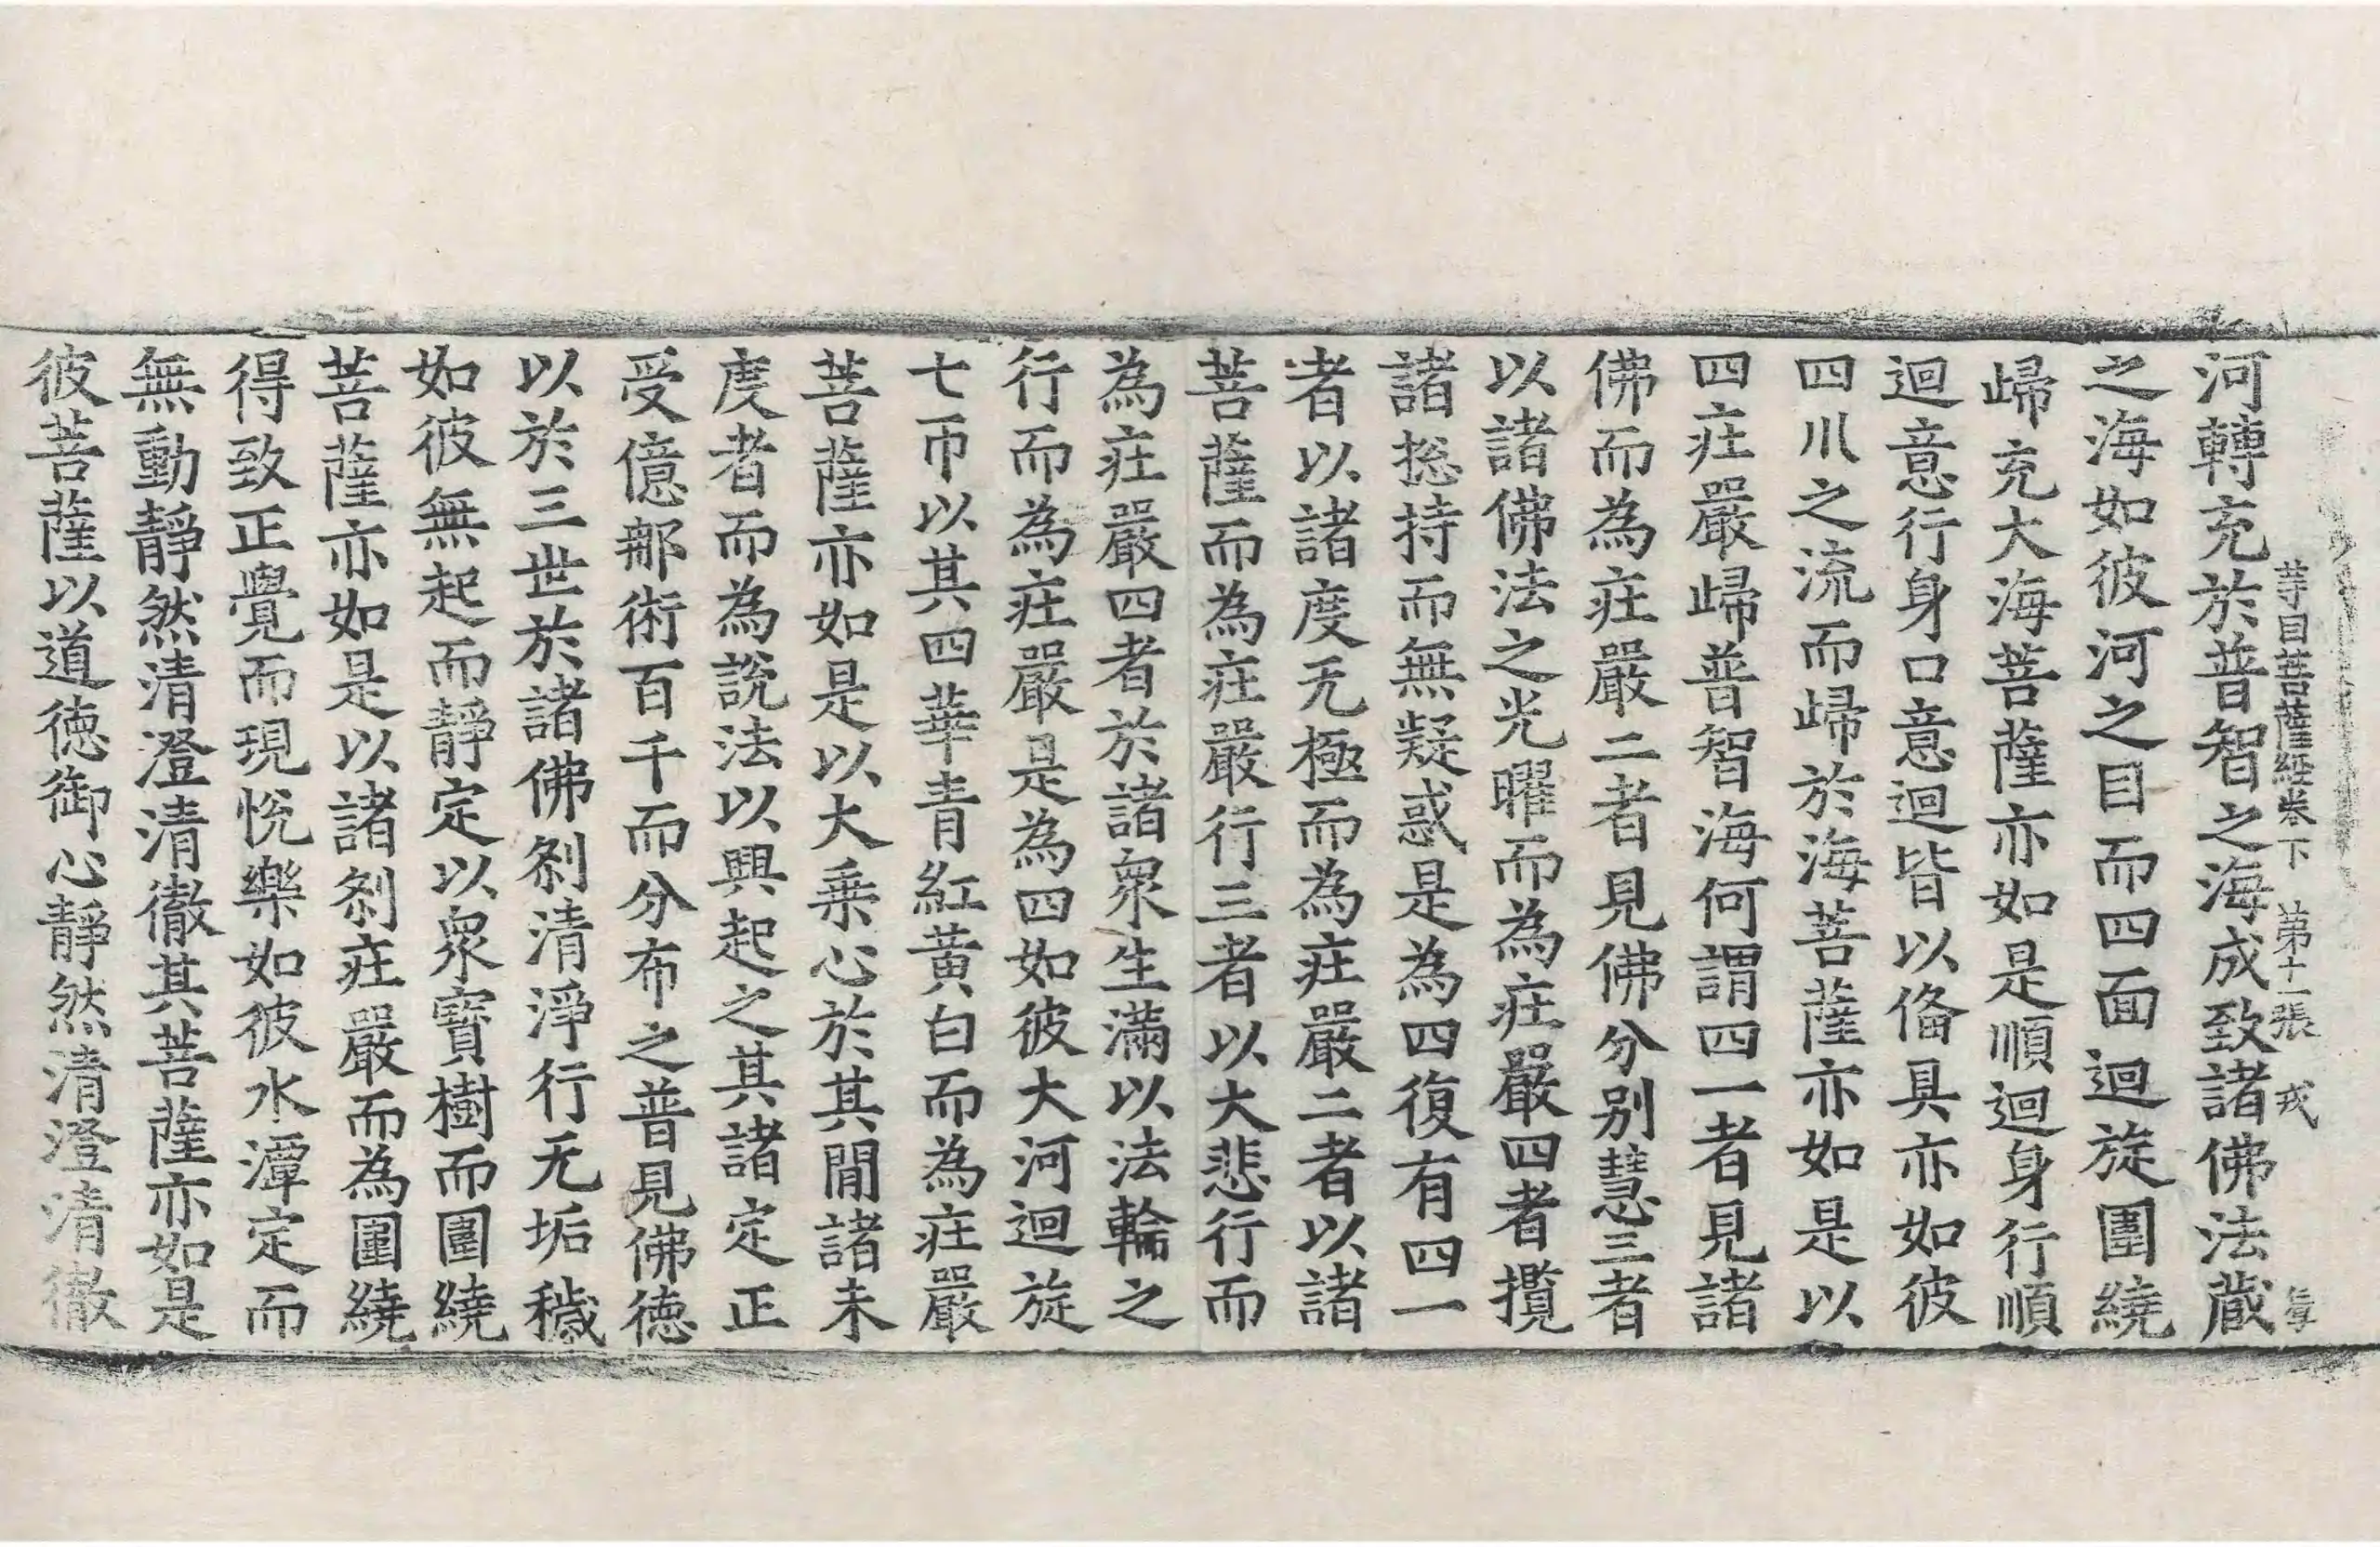 等目菩薩經卷下 第十一張 戎
河轉充於普智之海成致諸佛法蔵
之海如彼河之目而四面迴旋圍繞
歸充大海菩薩亦如是順迴身行順
迴意行身口意迴皆以俻具亦如彼
四川之流而歸於海菩薩亦如是以
四莊嚴歸普智海何謂四一者見諸
佛而為莊嚴二者見佛分别慧三者
以諸佛法之光曜而為莊嚴四者攬
諸捴持而無疑惑是為四復有四一
者以諸度无極而為莊嚴二者以諸
菩薩而為莊嚴行三者以大悲行而
為莊嚴四者於諸衆生滿以法輪之
行而為莊嚴是為四如彼大河迴旋
七帀以其四華青紅黃白而為莊嚴
菩薩亦如是以大乗心於其閒諸未
度者而為說法以興起之其諸定正
受億那術百千而分布之普見佛徳
以於三世於諸佛刹清淨行无垢穢
如彼無起而靜定以衆寶樹而圍繞
菩薩亦如是以諸刹莊嚴而為圍繞
得致正覺而現悅樂如彼水潭定而
無動靜然清澄清徹其菩薩亦如是
彼菩薩以道徳御心靜然清澄清徹